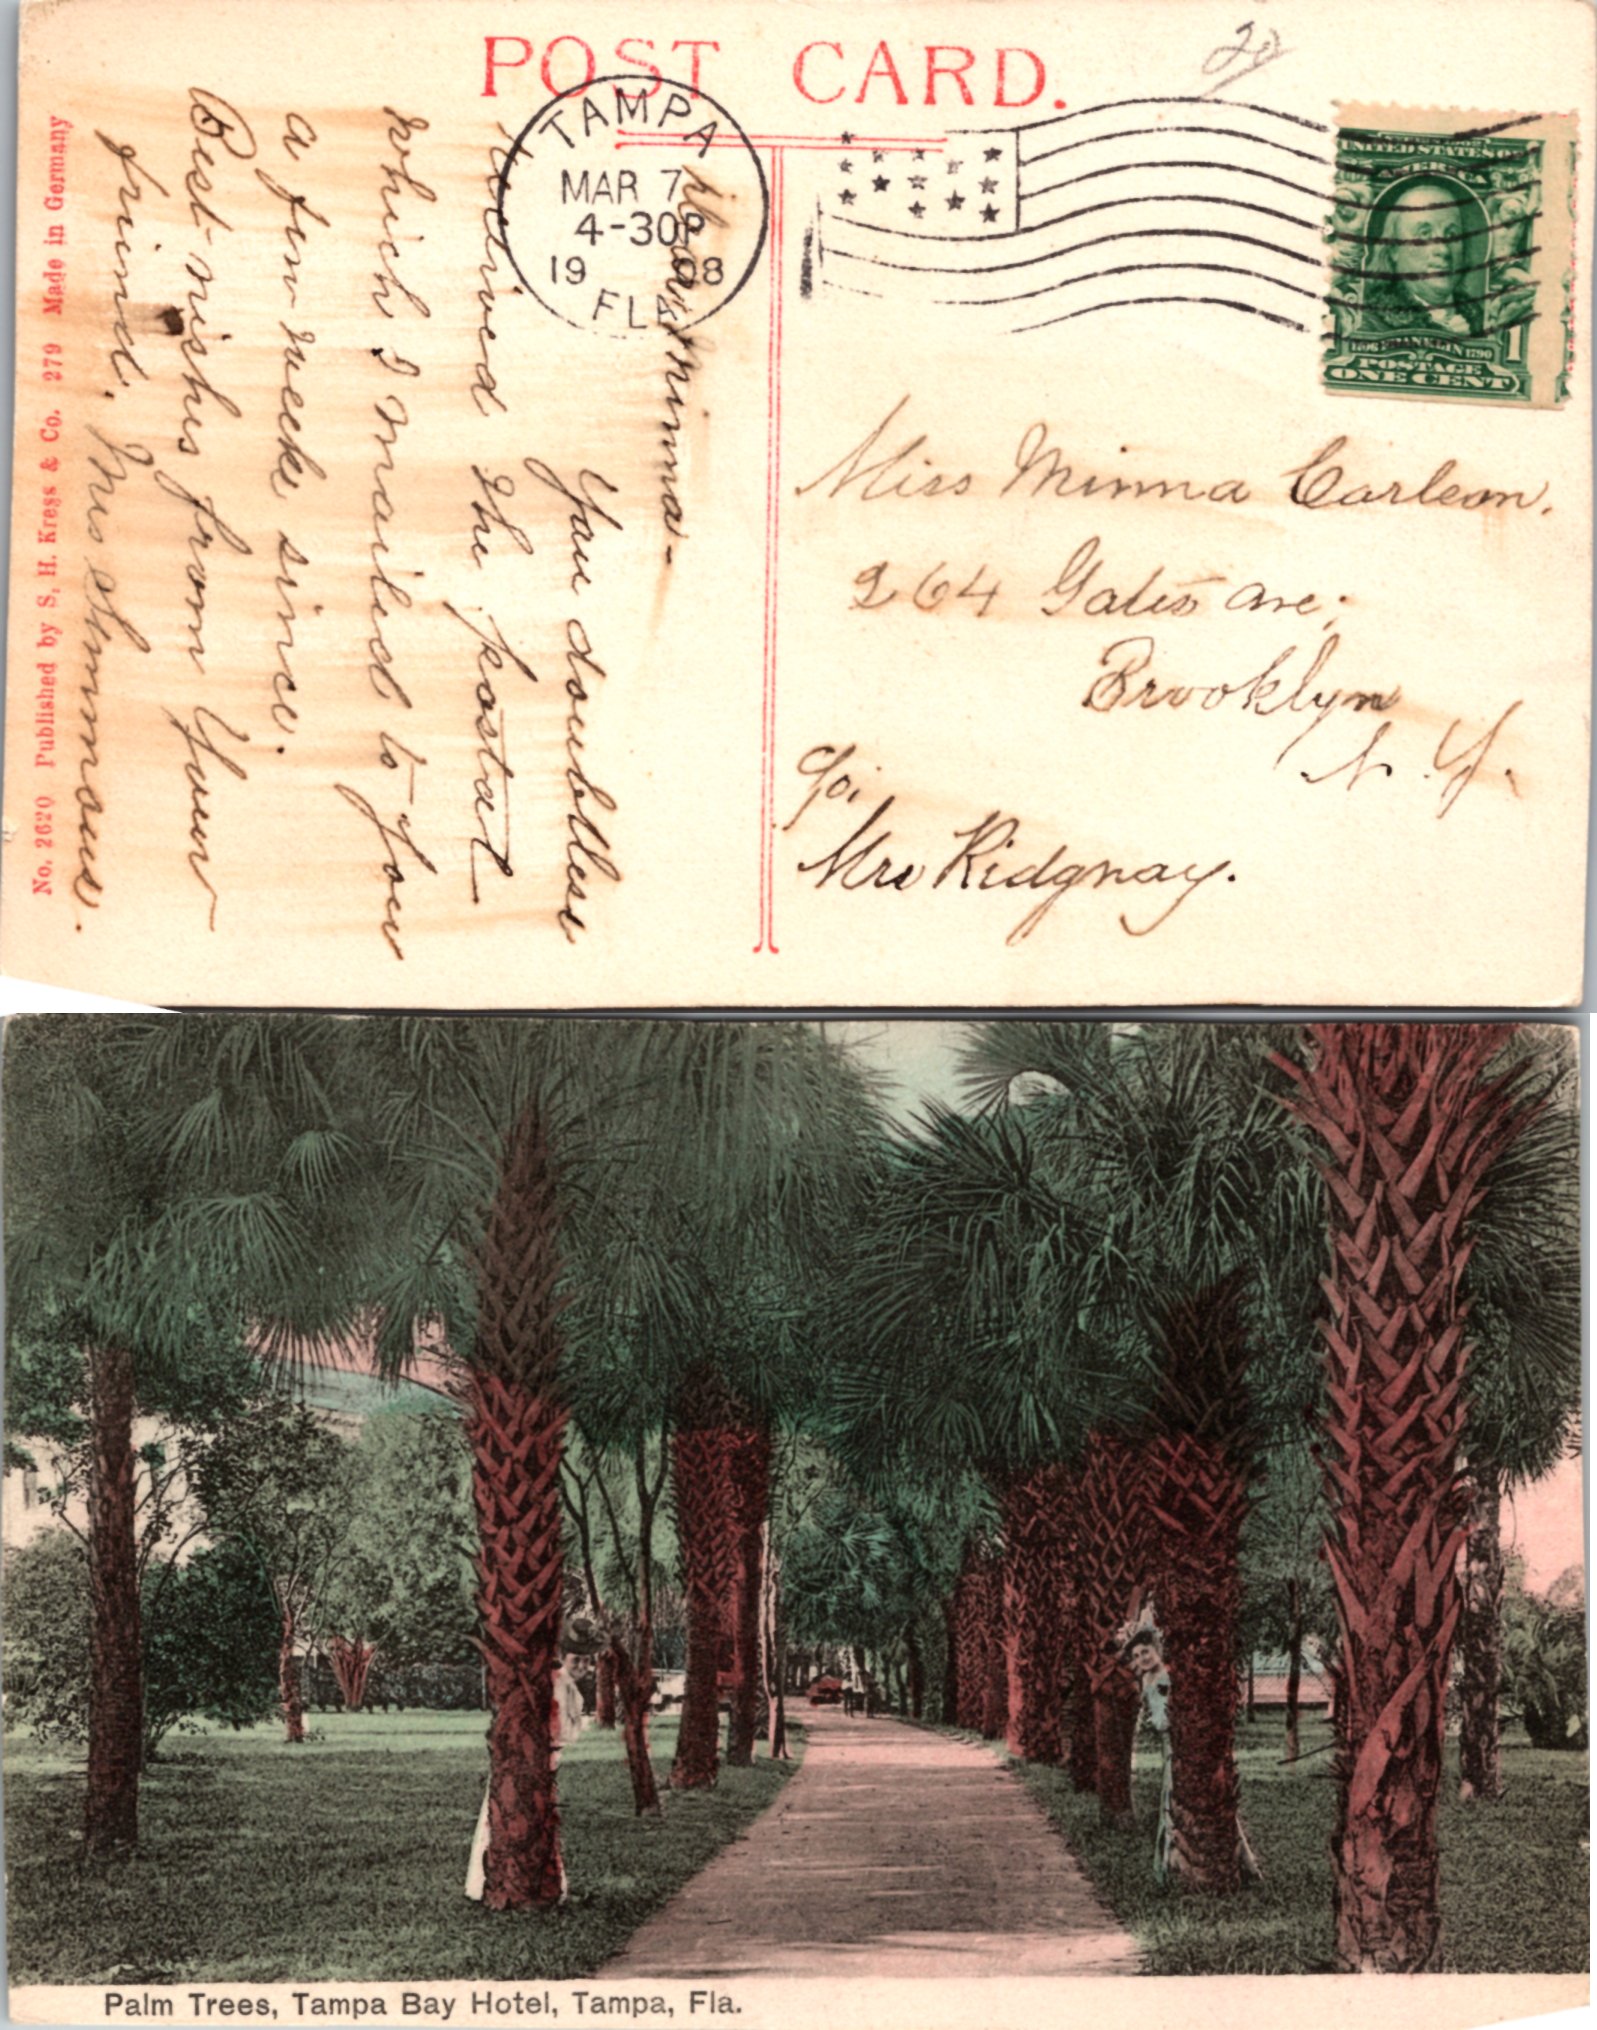 POST CARD.
20
TAMPA
MAR 7
4-30P
19 08
FLA
UNITED STATES OF
AMERICA
1706 FRANKLIN 1790
POSTAGE
ONE CENT
1
Dear Minna-
You doubtless
received the postal
which I mailed to you
a few weeks since.
Best wishes from Your
friend, Mrs Simmons.
Miss Minna Carlson.
264 Gates Ave;
Brooklyn
N. Y.
c/o;
Mrs Ridgway.
No. 2620 Published by S. H. Kress & Co. 279 Made in Germany
Palm Trees, Tampa Bay Hotel, Tampa, Fla.